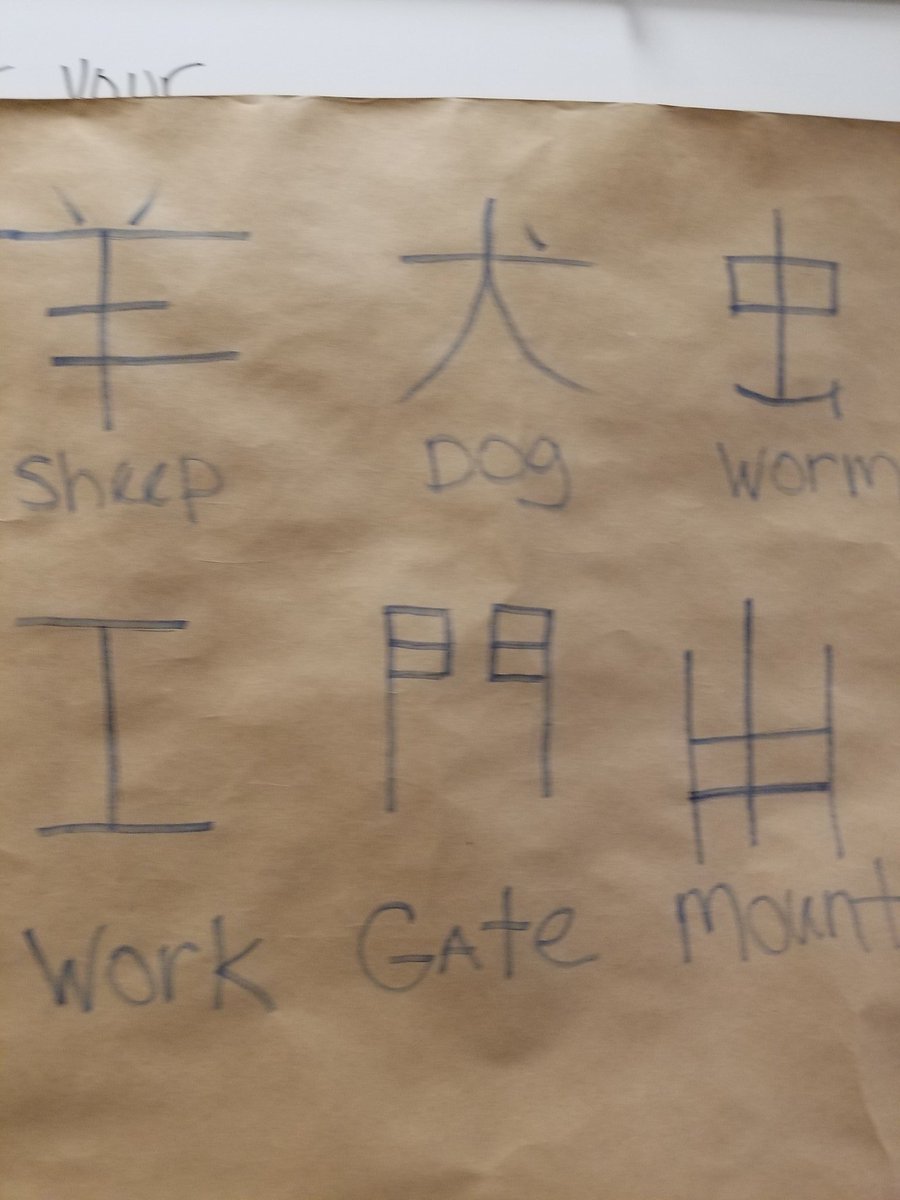 your
羊 犬 虫
Sheep Dog Worm
工 門
Work Gate Mount